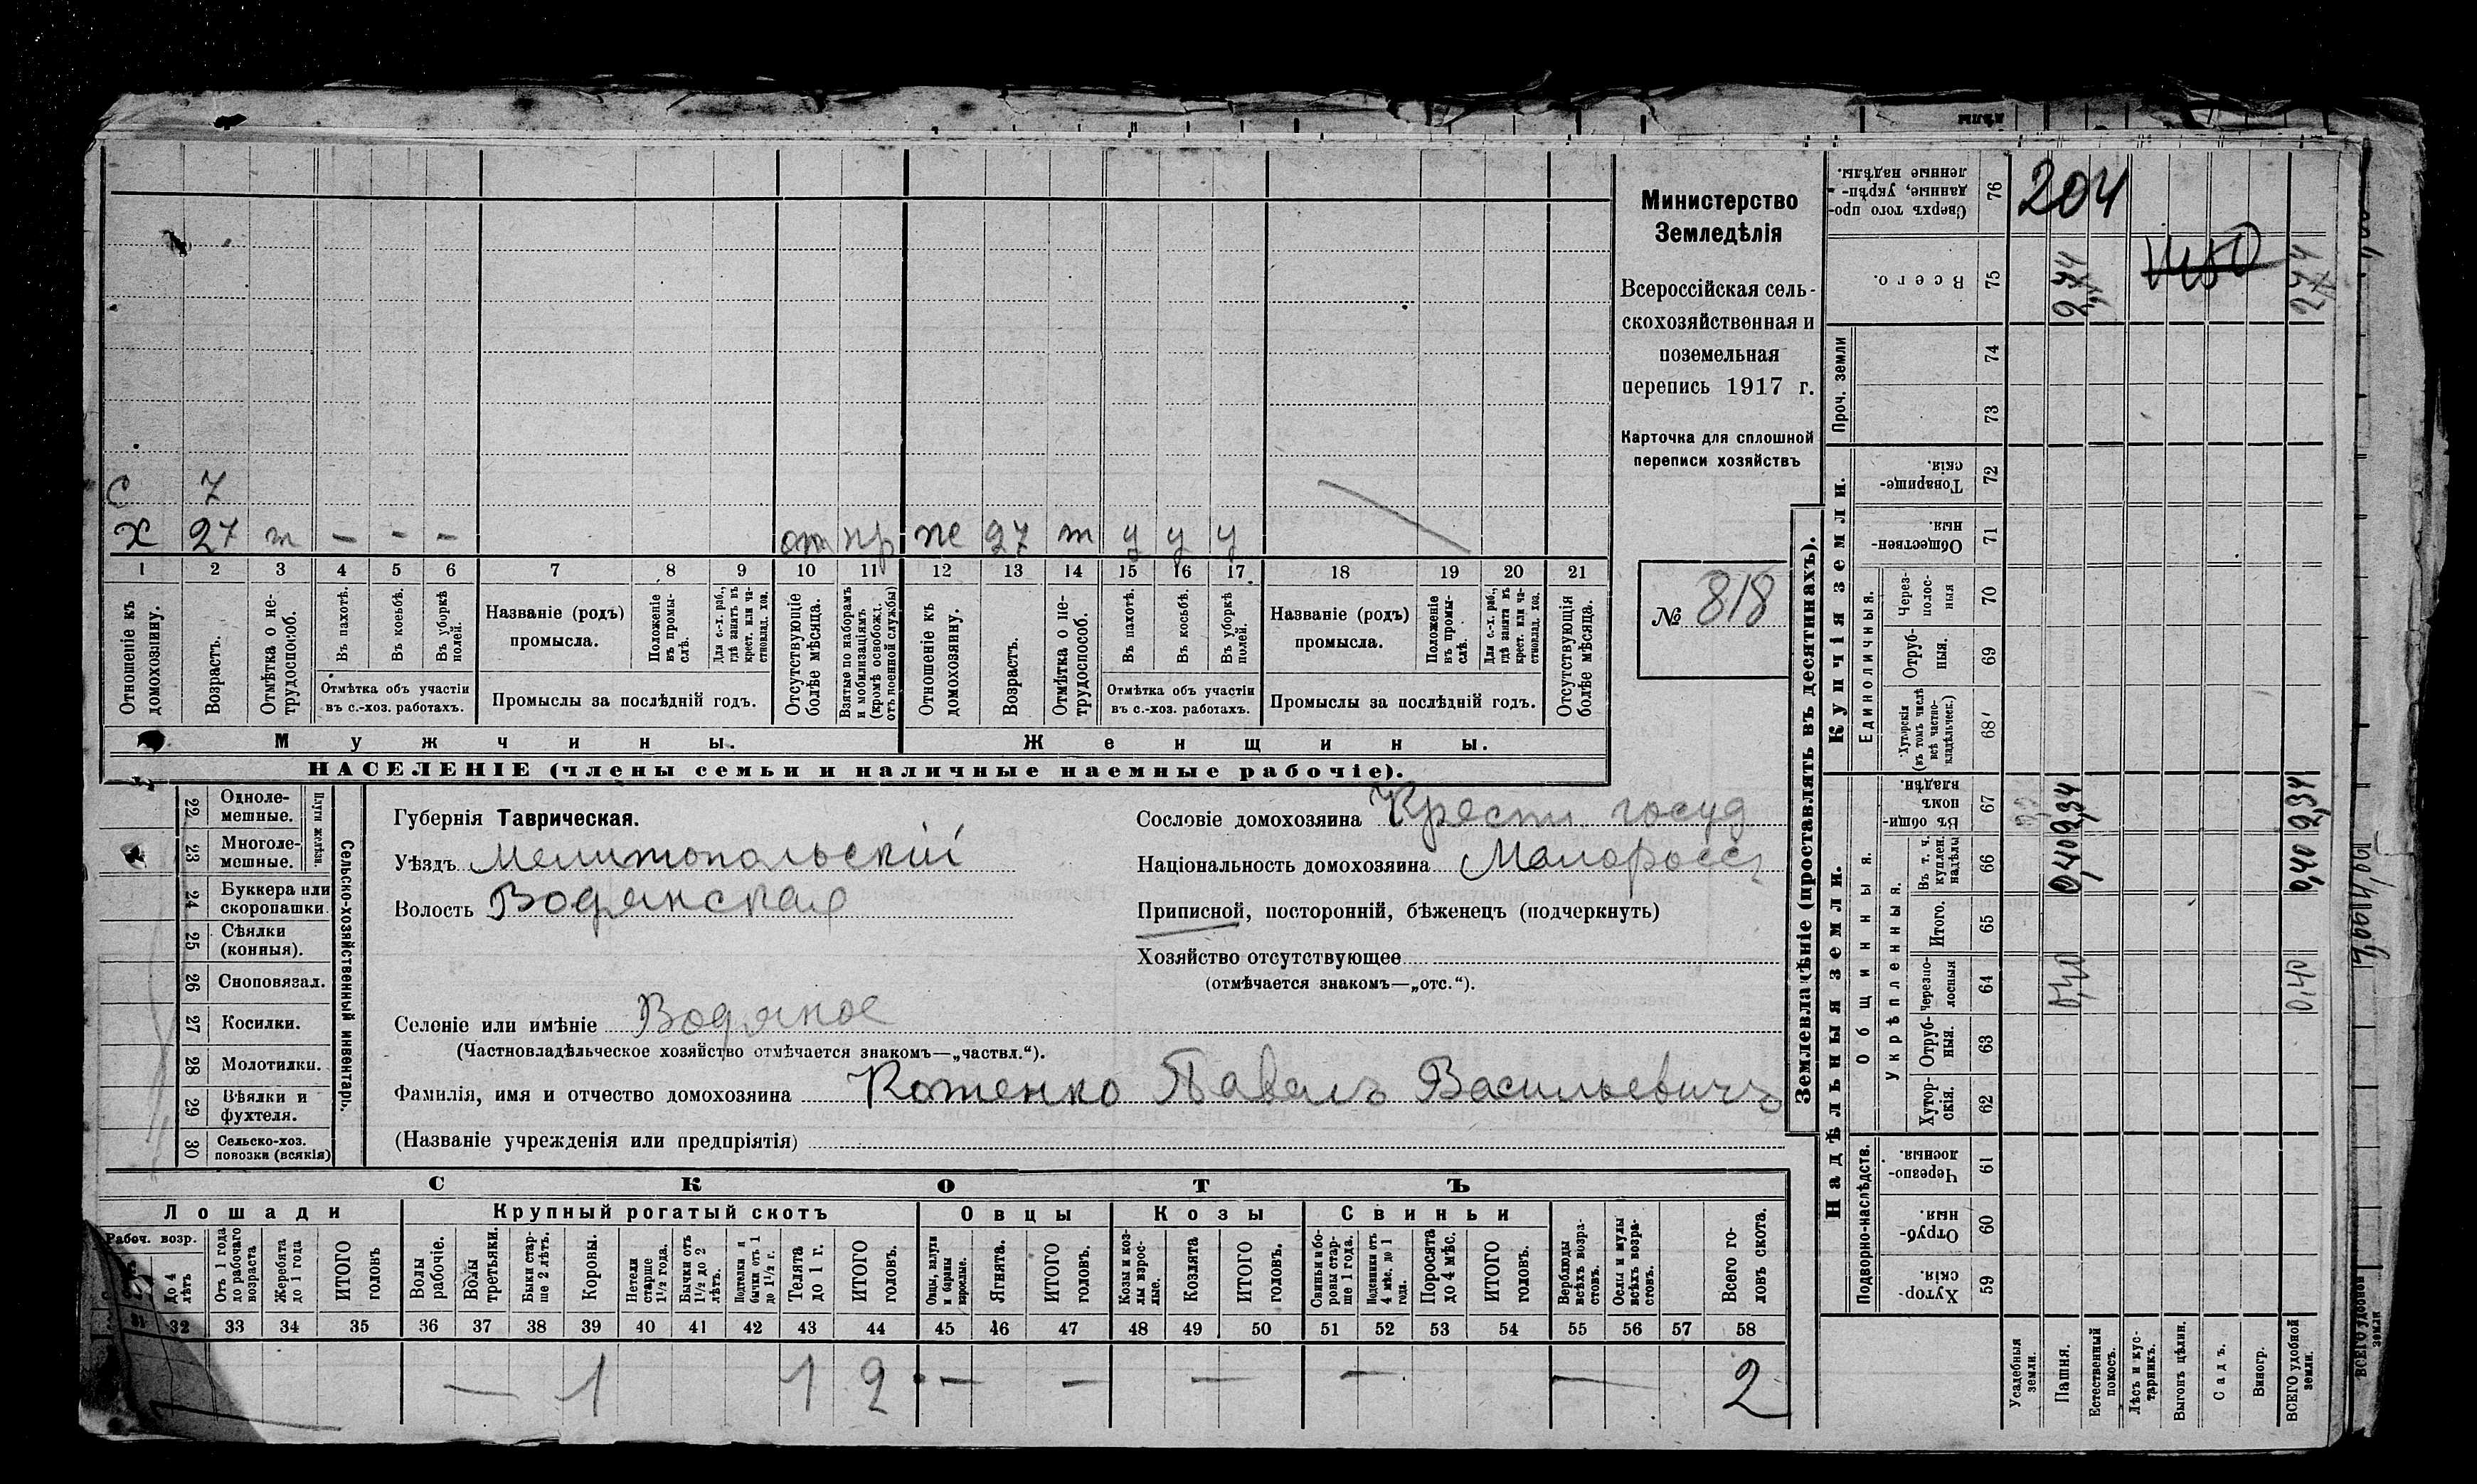 Министерство
Земледѣлія
Всероссійская сель-
скохозяйственная и
поземельная
перепись 1917 г.
Карточка для сплошной
переписи хозяйствъ
№ 818
С 7
Х 27 т – – – от пр же 27 т у у у
1 2 3 4 5 6 7 8 9 10 11 12 13 14 15 16 17 18 19 20 21
Отношеніе къ домохозяину.
Возрастъ.
Отмѣтка о не-трудоспособ.
Въ пахотѣ.
Въ косьбѣ.
Въ уборкѣ полей.
Отмѣтка объ участіи
въ с.-хоз. работахъ.
Названіе (родъ)
промысла.
Положеніе въ промы-слѣ.
Для с.-х. раб., гдѣ занятъ въ крест. или ча-стновлад. хоз.
Промыслы за послѣдній годъ.
Отсутствующіе болѣе мѣсяца.
Взятые по наборамъ и мобилизаціямъ (кромѣ освобожд. отъ военной службы)
Отношеніе къ домохозяину.
Возрастъ.
Отмѣтка о не-трудоспособ.
Въ пахотѣ.
Въ косьбѣ.
Въ уборкѣ полей.
Отмѣтка объ участіи
въ с.-хоз. работахъ.
Названіе (родъ)
промысла.
Положеніе въ промы-слѣ.
Для с.-х. раб., гдѣ занята въ крест. или ча-стновлад. хоз.
Промыслы за послѣдній годъ.
Отсутствующія болѣе мѣсяца.
Мужчины.
Женщины.
НАСЕЛЕНІЕ (члены семьи и наличные наемные рабочіе).
Сельско-хозяйственный инвентарь.
Плуги желѣзн.
22 Одноле-мешные.
23 Многоле-мешные.
24 Буккера или скоропашки.
25 Сѣялки (конныя).
26 Сноповязал.
27 Косилки.
28 Молотилки.
29 Вѣялки и фухтеля.
30 Сельско-хоз. повозки (всякія)
Губернія Таврическая.
Уѣздъ Мелитопольскій
Волость Водянская
Селеніе или имѣніе Водяное
(Частновладѣльческое хозяйство отмѣчается знакомъ—„частвл.“).
Фамилія, имя и отчество домохозяина Котенко Павелъ Васильевичъ
(Названіе учрежденія или предпріятія)
Сословіе домохозяина Крестн госуд
Національность домохозяина Малоросс
Приписной, посторонній, бѣженецъ (подчеркнуть)
Хозяйство отсутствующее
(отмѣчается знакомъ—„отс.“).
СКОТЪ
Лошади
Крупный рогатый скотъ
Овцы
Козы
Свиньи
Рабоч. возр.
До 4 лѣтъ
Отъ 1 года до рабочаго возраста
Жеребята до 1 года
ИТОГО головъ
Волы рабочіе.
Волы третьяки.
Быки стар-ше 2 лѣтъ.
Коровы.
Нетели старше 1½ года.
Бычки отъ 1½ до 2 лѣтъ.
Подтелки и бычки отъ 1 до 1½ г.
Телята до 1 г.
ИТОГО головъ.
Овцы, валухи и бараны взрослые.
Ягнята.
ИТОГО головъ.
Козы и коз-лы взрос-лые.
Козлята
ИТОГО головъ.
Свиньи и бо-ровы стар-ше 1 года.
Подсвинки отъ 4 мѣс. до 1 года.
Поросята до 4 мѣс.
ИТОГО головъ.
Верблюды всѣхъ возра-стовъ.
Ослы и мулы всѣхъ возра-стовъ.
Всего го-ловъ скота.
31 32 33 34 35 36 37 38 39 40 41 42 43 44 45 46 47 48 49 50 51 52 53 54 55 56 57 58
— 1 1 2 — — — — — 2
Землевладѣніе (проставлять въ десятинахъ).
Надѣльныя земли.
Купчія земли.
Проч. земли
Подворно-наслѣдств.
Общинныя.
Укрѣпленныя.
Единоличныя.
Сверхъ того про-данные, укрѣп-ленные надѣлы. 76
Всего. 75
74
73
Товарище-скія. 72
Обществен-ныя. 71
Через-полос-ныя 70
Отруб-ныя. 69
Хуторскія (въ томъ числѣ всѣ частно-владѣльческ.) 68
Въ общин-номъ владѣн. 67
Въ т. ч. куплен. надѣлы 66
Итого. 65
Черезпо-лосныя 64
Отруб-ныя. 63
Хутор-скія. 62
Черезпо-лосныя. 61
Отруб-ныя. 60
Хутор-скія. 59
204
2,74
274
2,34
0,40
0,40
2,34
0,40
0,40
Усадебныя земли.
Пашня.
Естественный покосъ.
Лѣсъ и кус-тарникъ.
Выгонъ цѣлин.
Садъ.
Виногр.
ВСЕГО удобной земли.
ВСЕГО удобной земли